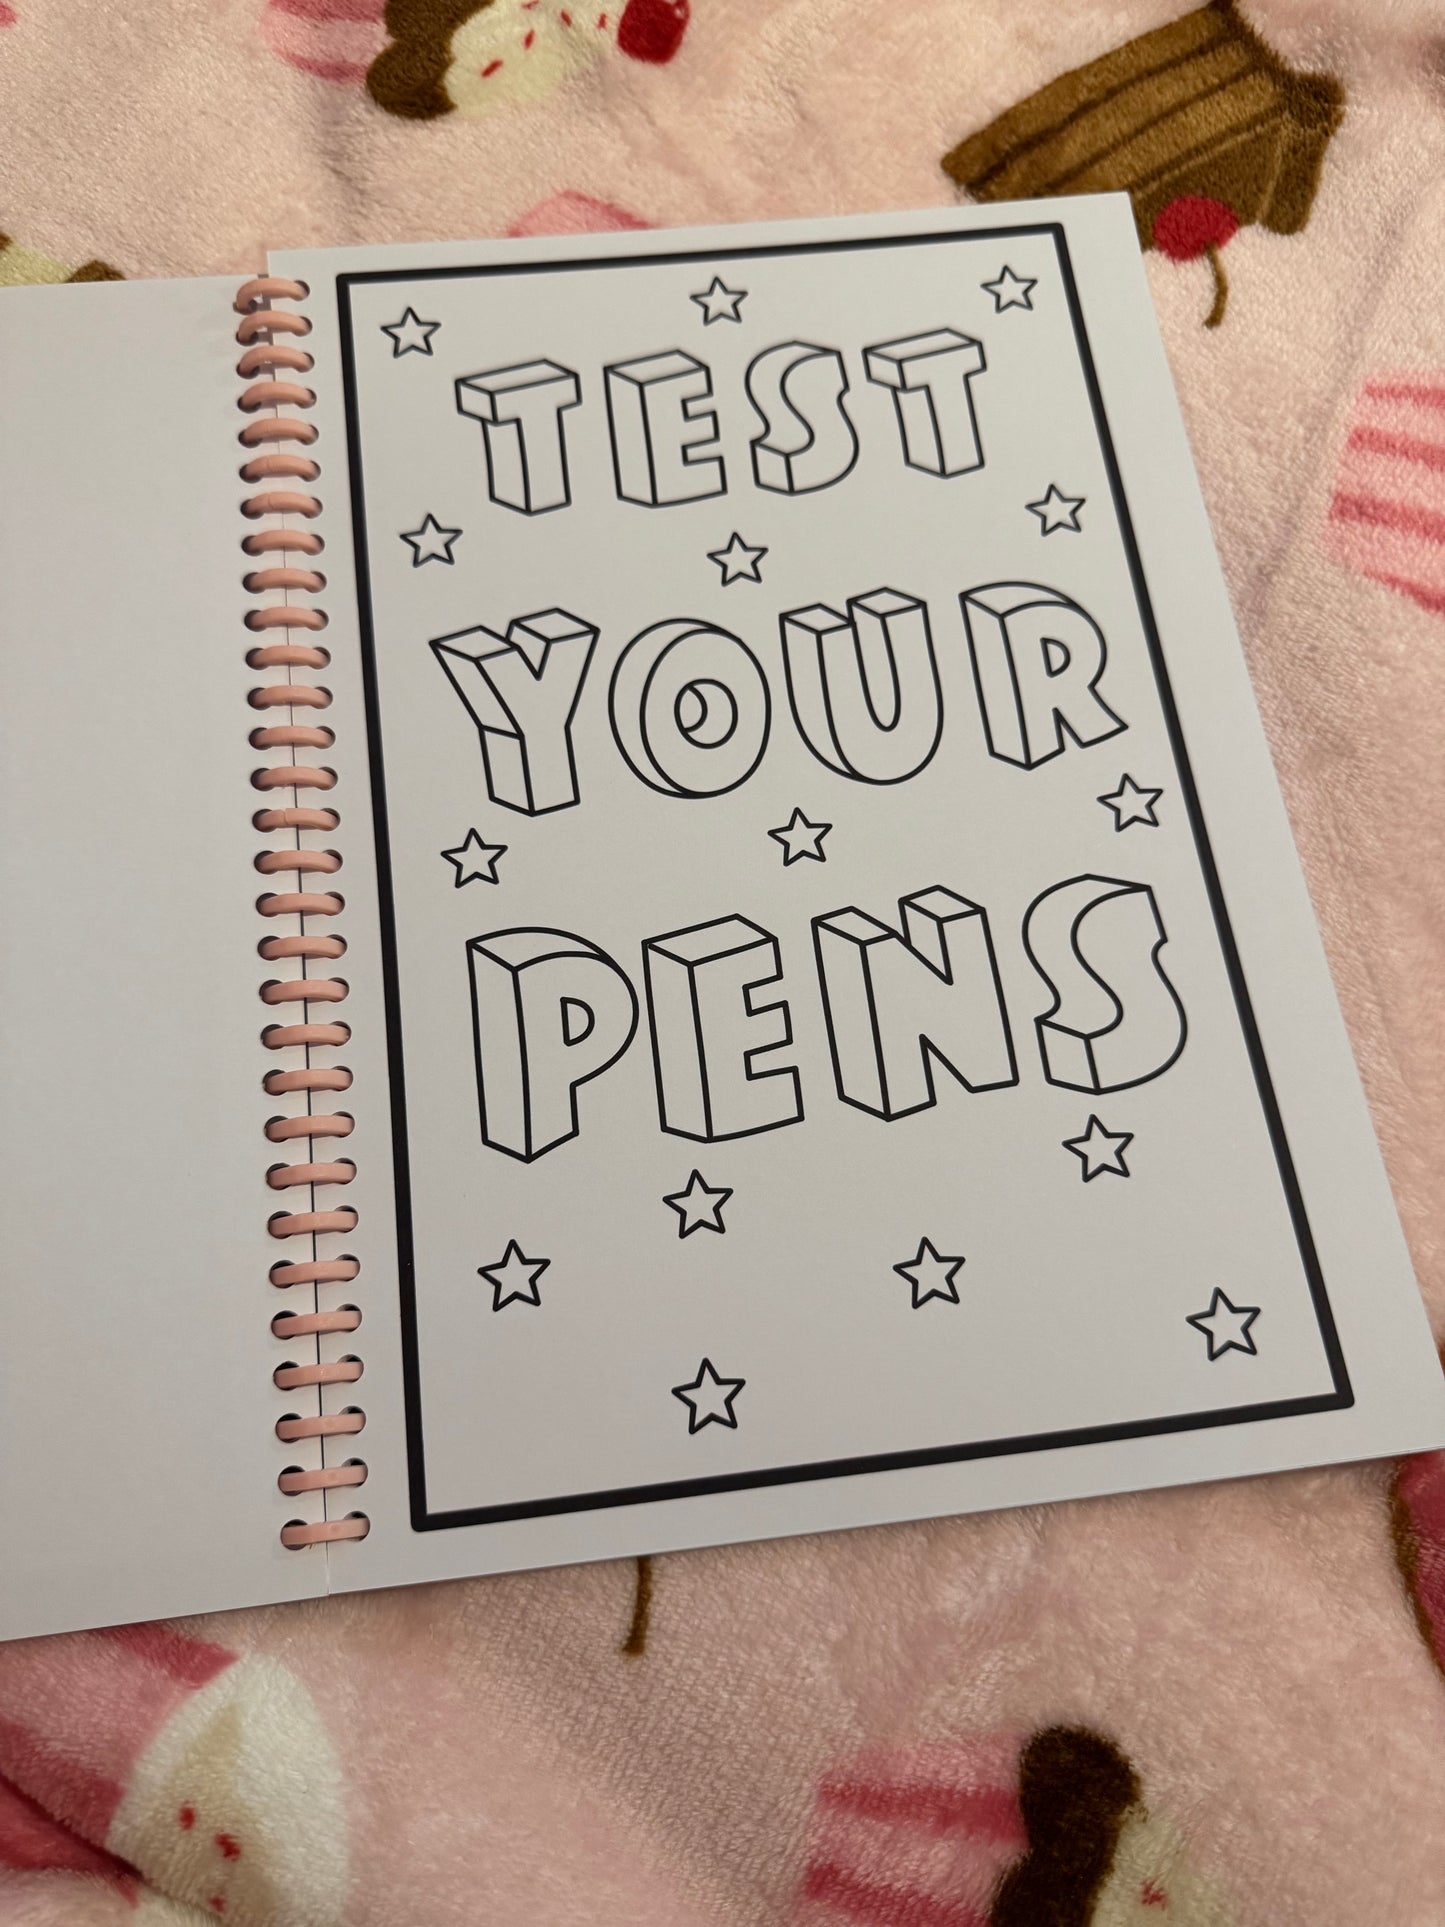 TEST
YOUR
PENS